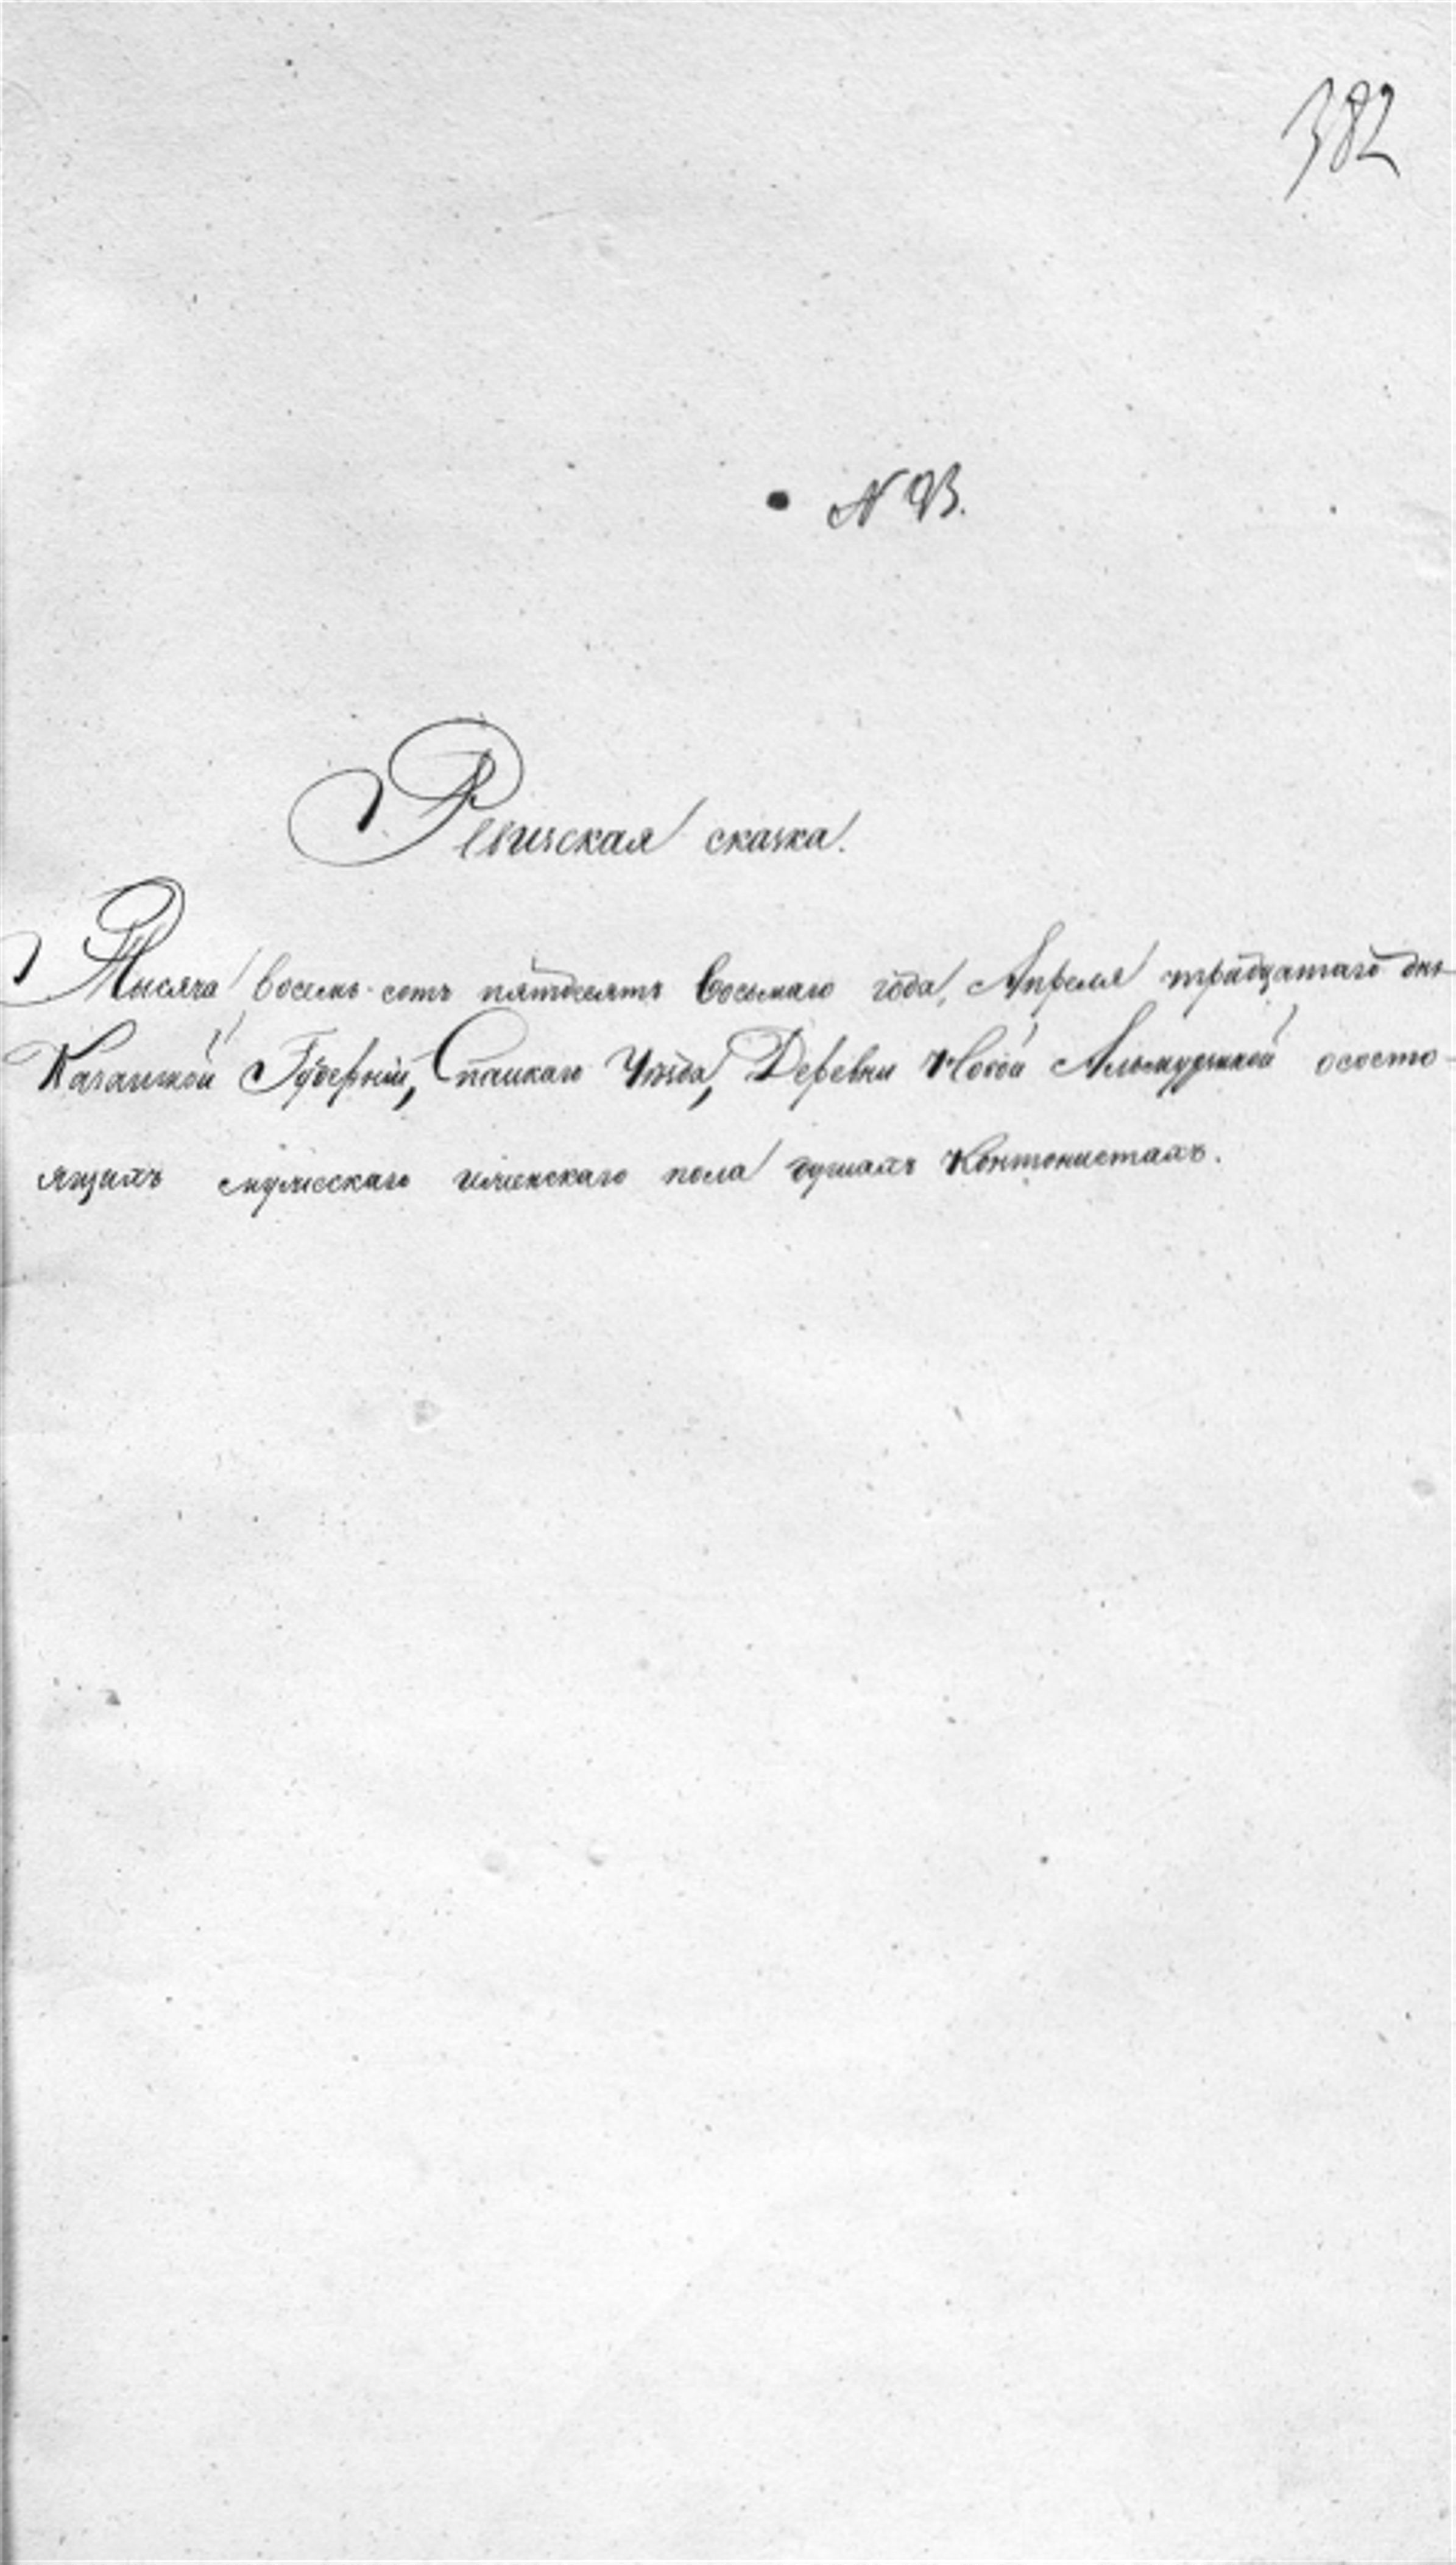 382
Ревизская сказка.
Тысяча восемь-сотъ пятдесятъ восьмаго года, Апреля тридцатаго дня
Казанской Губерніи, Спаскаго Уѣзда, Деревни Новой ососто-
ящихъ мужескаго иженскаго пола душахъ Контонистахъ.